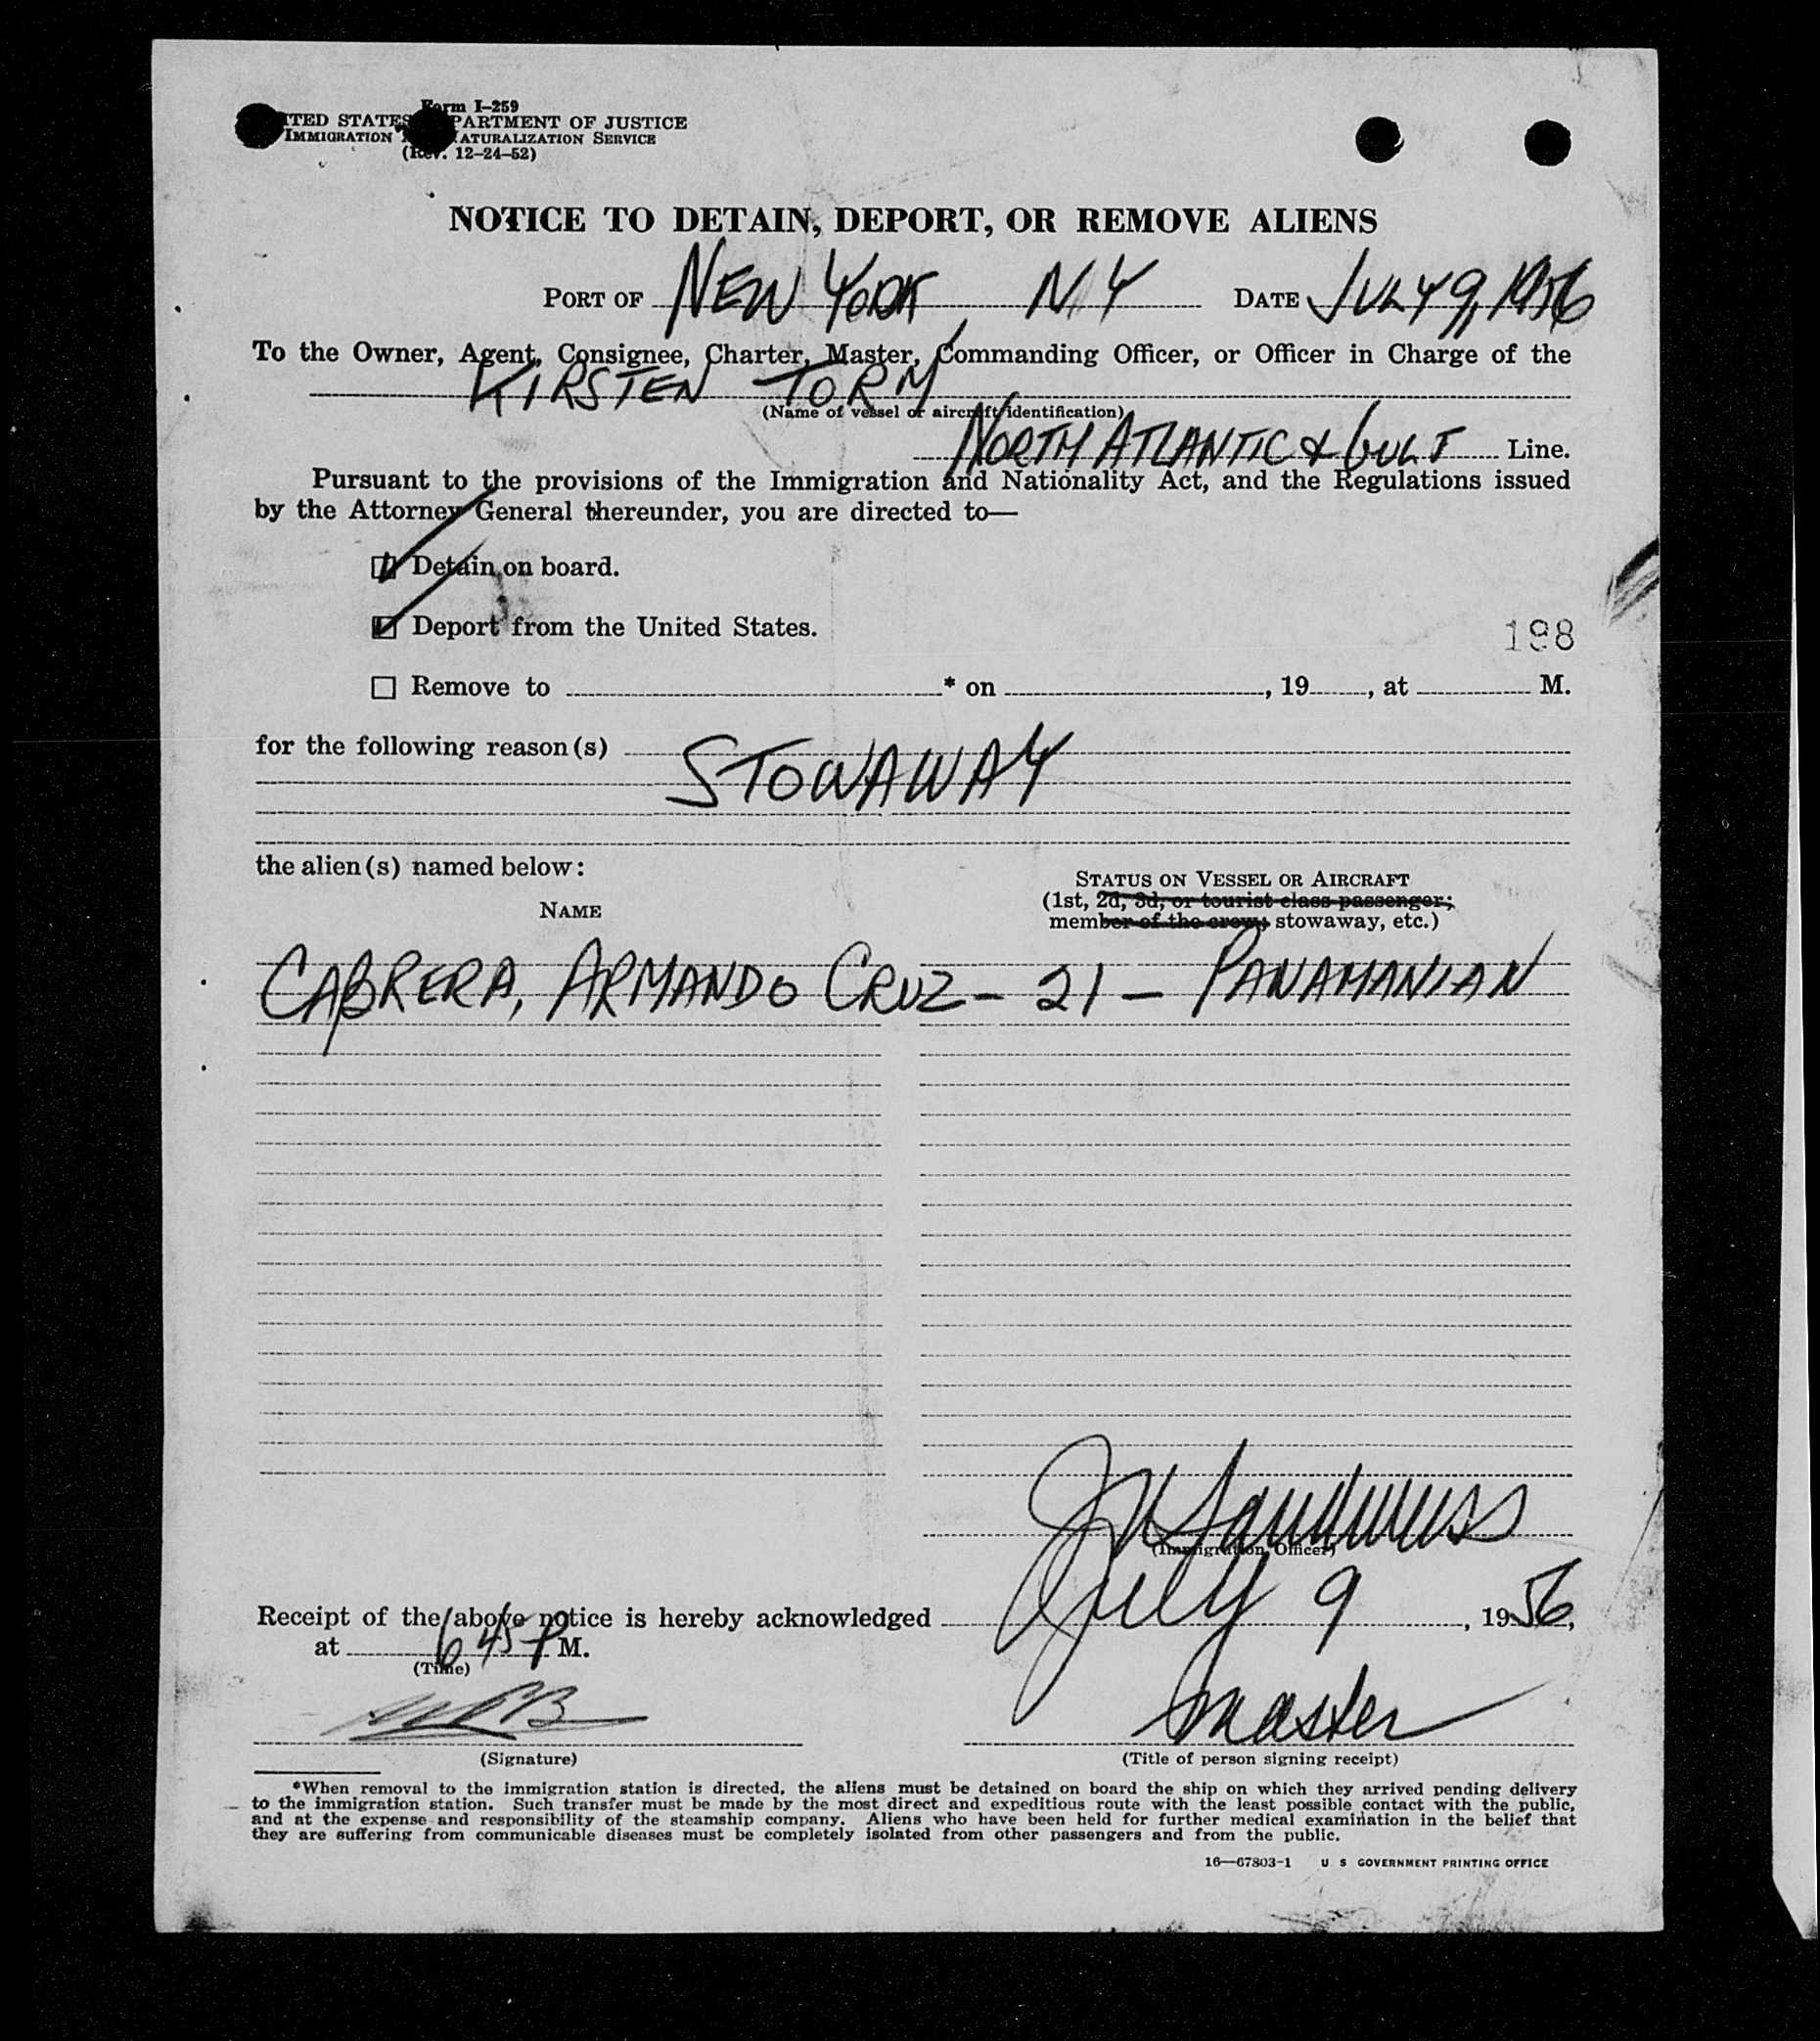 Form I-259
ITED STATES PARTMENT OF JUSTICE
IMMIGRATION ATURALIZATION SERVICE
(Rev. 12-24-52)
NOTICE TO DETAIN, DEPORT, OR REMOVE ALIENS
PORT OF NEW YORK, NY DATE JULY 9, 1956
To the Owner, Agent, Consignee, Charter, Master, Commanding Officer, or Officer in Charge of the
KIRSTEN TORM
(Name of vessel or aircraft identification)
NORTH ATLANTIC & GULF Line.
Pursuant to the provisions of the Immigration and Nationality Act, and the Regulations issued
by the Attorney General thereunder, you are directed to—
Detain on board.
Deport from the United States.
198
Remove to * on , 19 , at M.
for the following reason(s)
STOWAWAY
the alien(s) named below:
NAME
STATUS ON VESSEL OR AIRCRAFT
(1st, 2d, 3d, or tourist class passenger;
member of the crew, stowaway, etc.)
CABRERA, ARMANDO CRUZ - 21 - PANAMANIAN
(Immigration Officer)
Receipt of the above notice is hereby acknowledged July 9, 1956,
at 645 P M.
(Time)
Master
(Signature) (Title of person signing receipt)
*When removal to the immigration station is directed, the aliens must be detained on board the ship on which they arrived pending delivery
to the immigration station. Such transfer must be made by the most direct and expeditious route with the least possible contact with the public,
and at the expense and responsibility of the steamship company. Aliens who have been held for further medical examination in the belief that
they are suffering from communicable diseases must be completely isolated from other passengers and from the public.
16—67803-1 U S GOVERNMENT PRINTING OFFICE